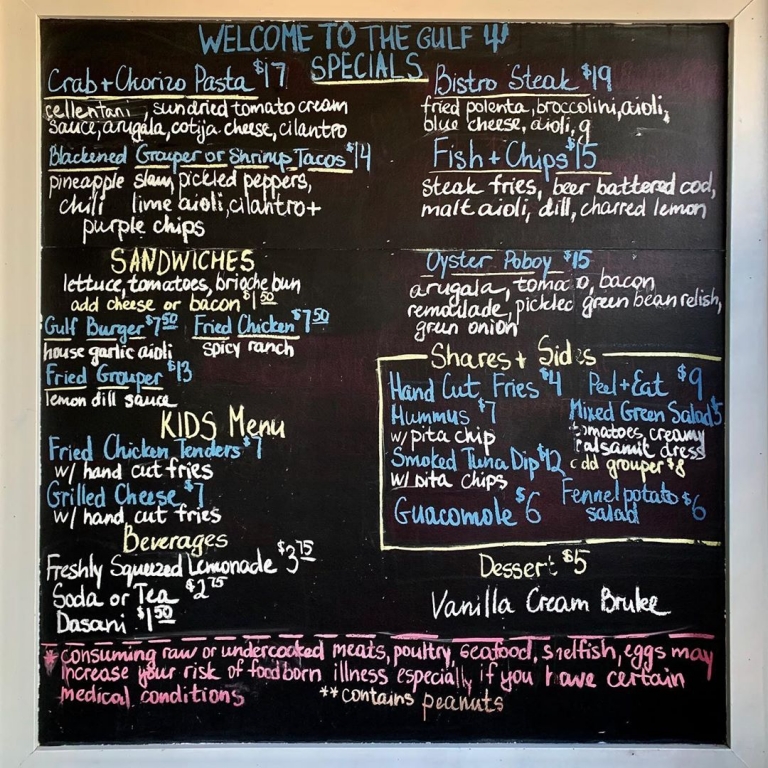 WELCOME TO THE GULF
SPECIALS
Crab + Chorizo Pasta $17
cellentani, sundried tomato cream
sauce, arugala, cotija cheese, cilantro
Blackened Grouper or Shrimp Tacos $14
pineapple slaw, pickled peppers,
chili lime aioli, cilantro +
purple chips
Bistro Steak $19
fried polenta, broccolini, aioli,
blue cheese, aioli, g
Fish + Chips $15
steak fries, beer battered cod,
malt aioli, dill, charred lemon
SANDWICHES
lettuce, tomatoes, brioche bun
add cheese or bacon $1.50
Gulf Burger $7.50 Fried Chicken $7.50
house garlic aioli spicy ranch
Fried Grouper $13
lemon dill sauce
KIDS Menu
Fried Chicken Tenders $7
w/ hand cut fries
Grilled Cheese $7
w/ hand cut fries
Beverages
Freshly Squeezed Lemonade $3.75
Soda or Tea $2.75
Dasani $1.50
Oyster Poboy $15
arugala, toma o, bacon
remoulade, pickled green bean relish,
green onion
Shares + Sides
Hand Cut Fries $4 Peel + Eat $9
Hummus $7 Mixed Green Salad $5
w/ pita chip tomatoes, creamy
balsamic dress
Smoked Tuna Dip $12 add grouper $8
w/ pita chips
Guacomole $6 Fennel potato $6
salad
Dessert $5
Vanilla Cream Brulee
* consuming raw or undercooked meats, poultry, seafood, shelfish, eggs may
increase your risk of foodborn illness especially if you have certain
medical conditions **contains peanuts